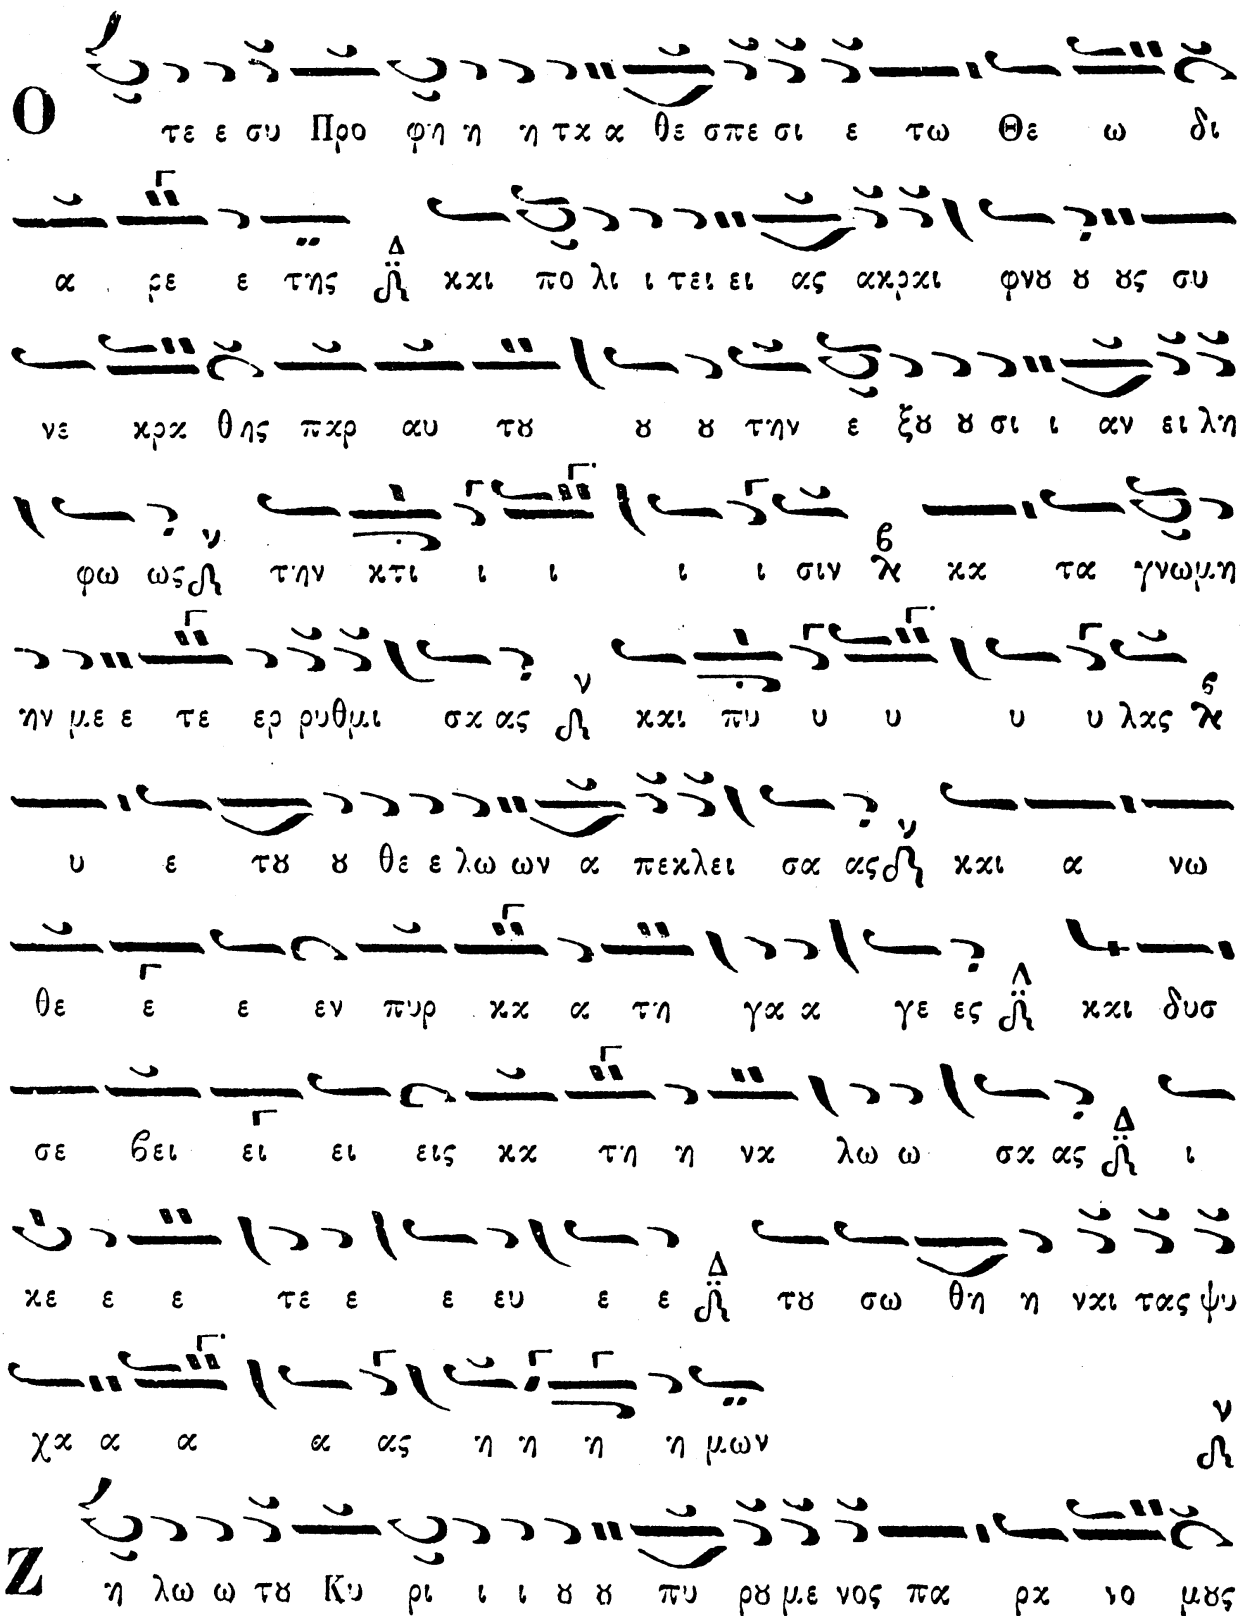 Ο τε ε συ Προ φη η η τα α θε σπε σι ε τω Θε ω δι
α ρε ε της Δ και πο λι ι τει ει ας ακραι φνȣ ȣ ȣς συ
νε κρα θης παρ αυ τȣ ȣ ȣ την ε ξȣ ȣ σι ι αν ει λη
φω ως ν την κτι ι ι ι ι σιν β κα τα γνωμη
ην με ε τε ερ ρυθμι σα ας ν και πυ υ υ υ υ λας β
υ ε τȣ ȣ θε ε λω ων α πεκλει σα ας ν και α νω
θε ε ε εν πυρ κα α τη γα α γε ες Δ και δυσ
σε βει ει ει εις κα τη η να λω ω σα ας Δ ι
κε ε ε τε ε ε ευ ε ε Δ τȣ σω θη η ναι τας ψυ
χα α α α ας η η η η μων ν
Ζ η λω ω τȣ Κυ ρι ι ι ȣ ȣ πυ ρȣ με νος πα ρα νο μȣς